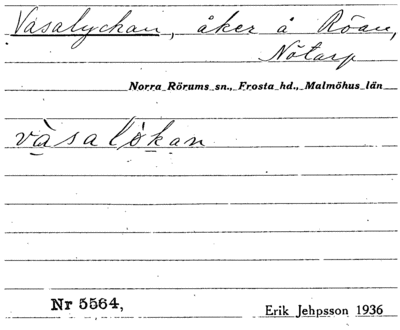 Vasalyckan, åker å Röan,
Nötarp
Norra Rörums sn., Frosta hd., Malmöhus län
vàsalỳkan
Nr 5564,
Erik Jehpsson 1936